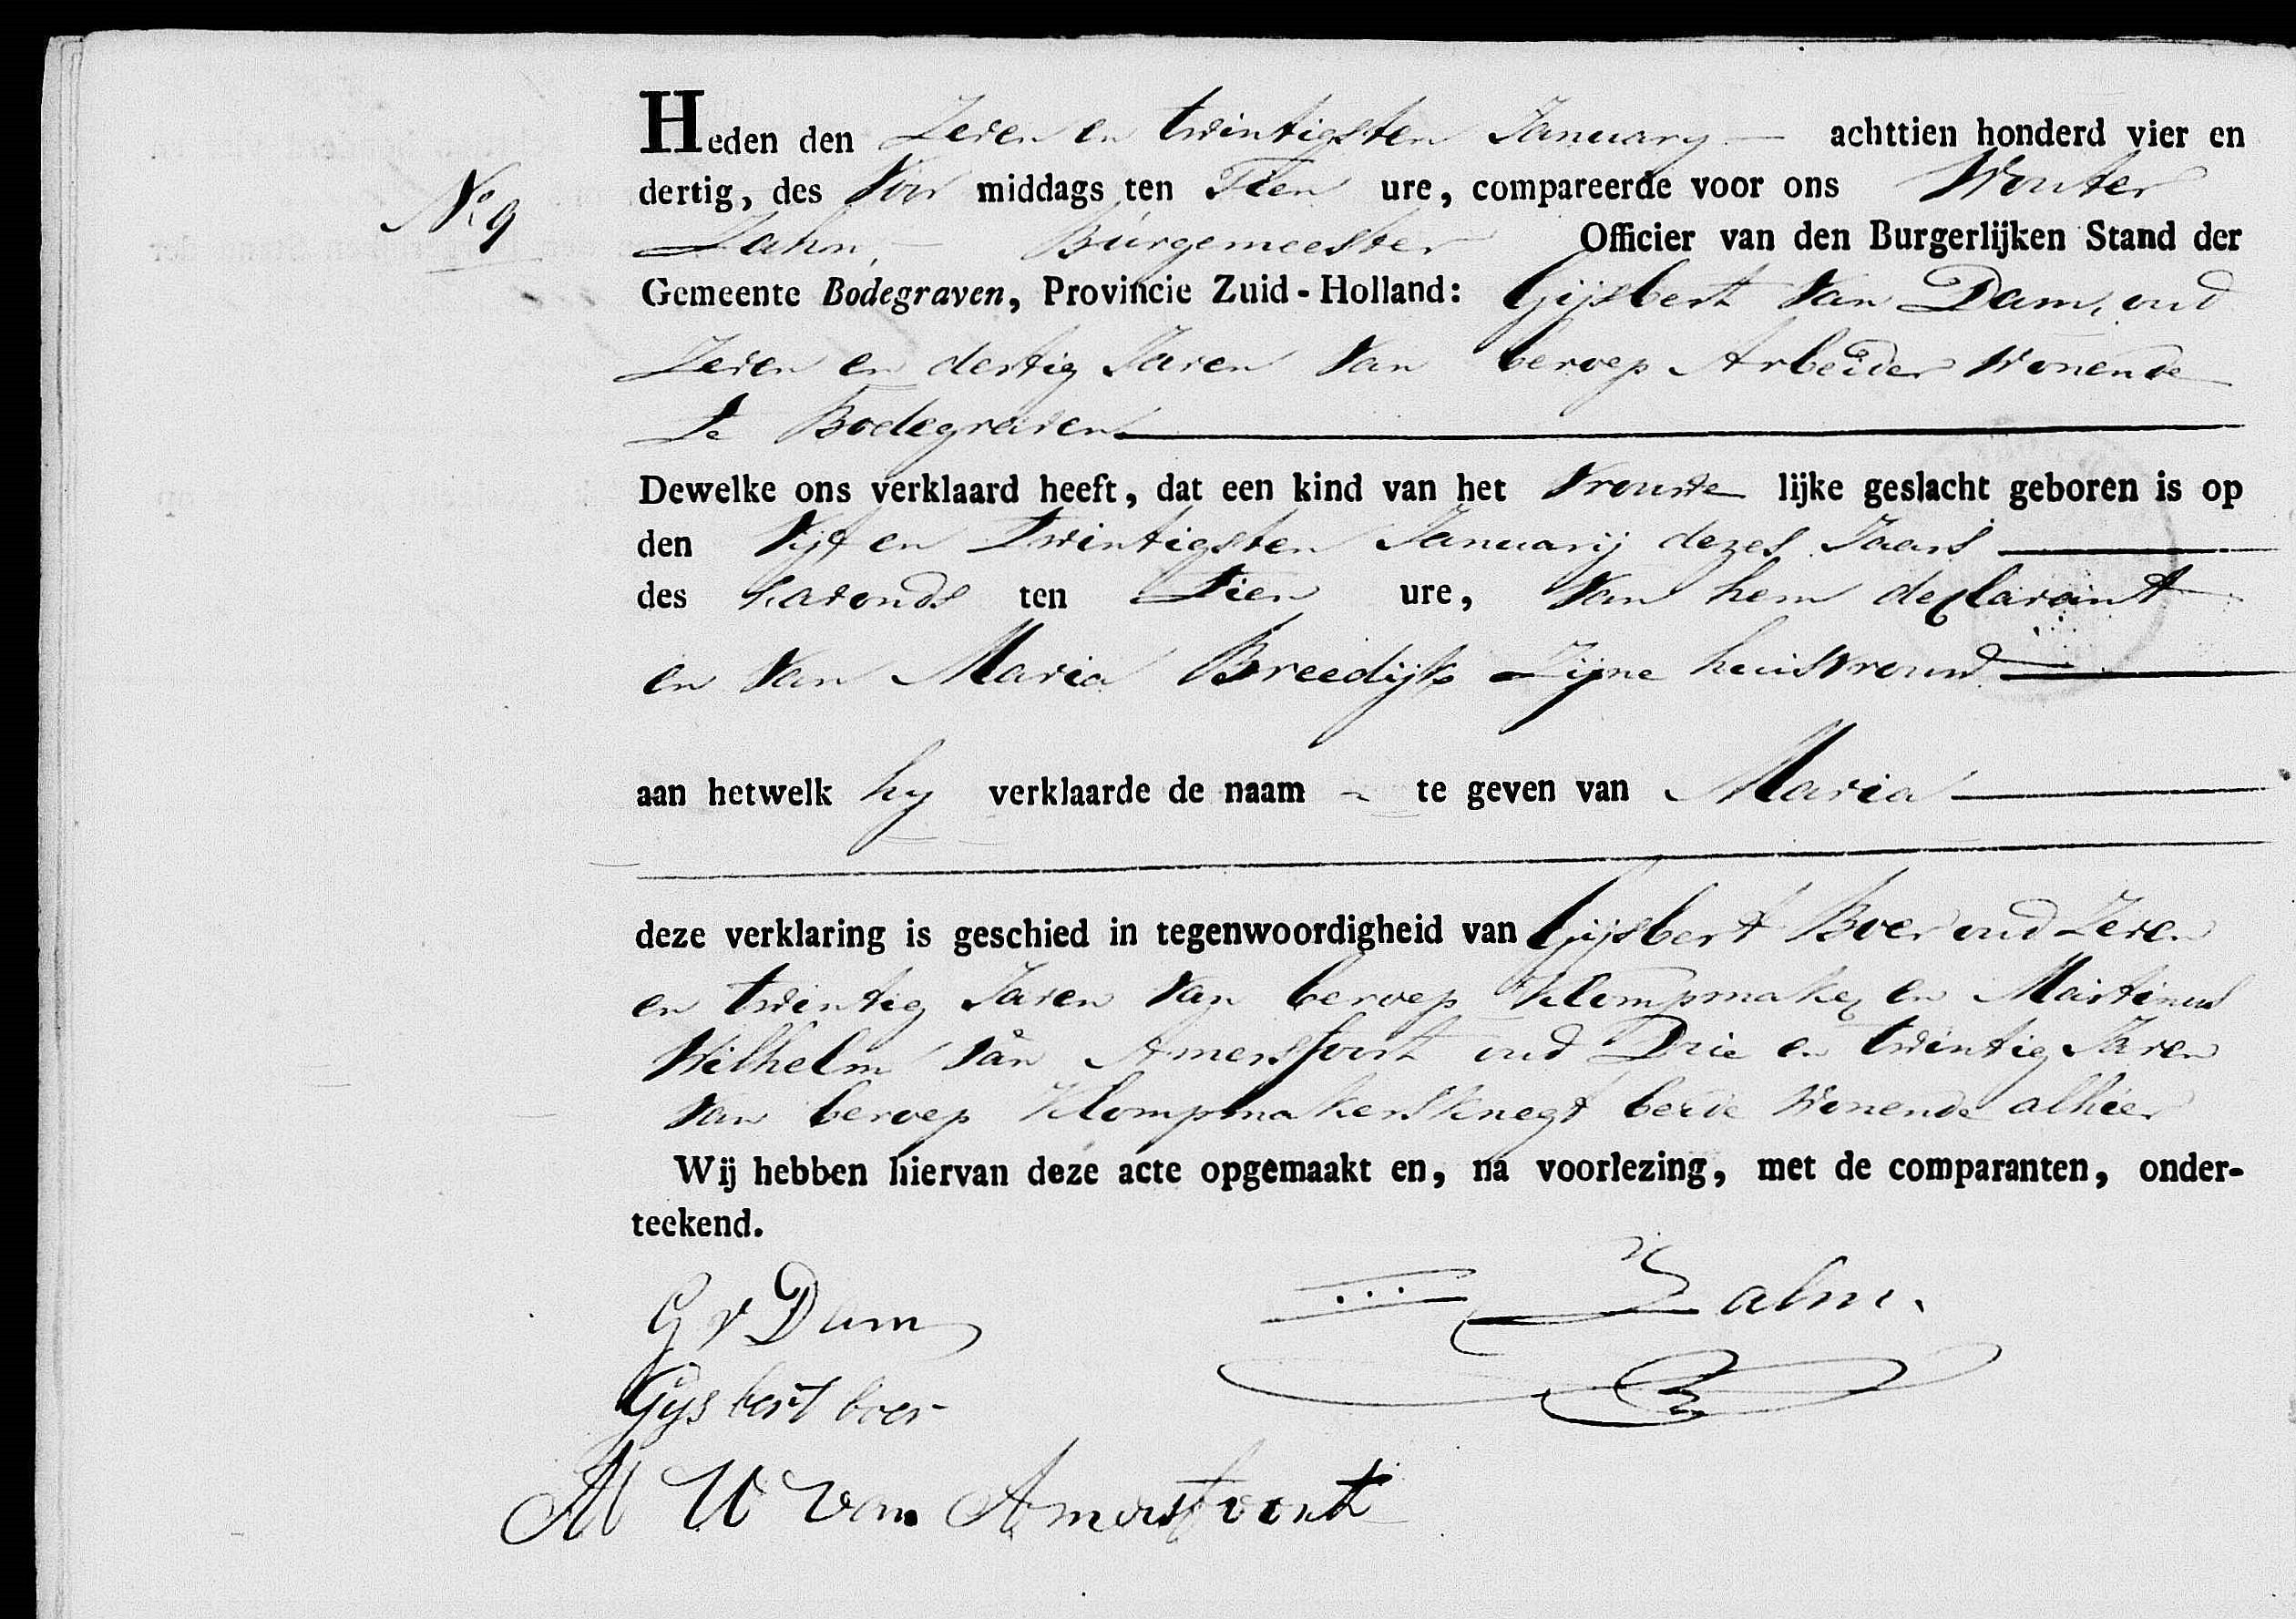 Heden den Zeven en twintigsten January achttien honderd vier en
dertig, des Voor middags ten Tien ure, compareerde voor ons Wouter
Zalm, Burgemeester Officier van den Burgerlijken Stand der
Nº 9
Gemeente Bodegraven, Provincie Zuid-Holland: Gijsbert Van Dam, oud
Zeven en dertig Jaren Van beroep Arbeider Wonende
Te Bodegraven
Dewelke ons verklaard heeft, dat een kind van het Vrouwe lijke geslacht geboren is op
den Vijf en Twintigsten Januarij dezes Jaars
des savonds ten Tien ure, Van hem declarant
en Van Maria Breedijk Zijne huisvrouw
aan hetwelk hy verklaarde de naam te geven van Maria
deze verklaring is geschied in tegenwoordigheid van Gijsbert Boer oud Zeven
en twintig Jaren Van beroep Klompmaker en Martinus
Wilhelm Van Amersfoort oud Drie en twintig Jaren
Van beroep Klompmakersknegt beide Wonende alhier
Wij hebben hiervan deze acte opgemaakt en, na voorlezing, met de comparanten, onder-
teekend.
G v Dam
Zalm.
Gysbert boer
M W van Amersfoort